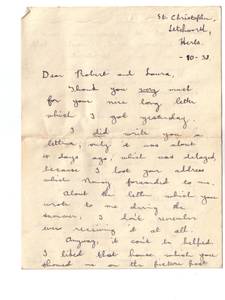 St. Christopher,
Letchworth,
Herts.
-10-33
Dear Robert and Laura,
Thank you very much
for your nice long letter
which I got yesterday.
I did write you a
letter, only it was about
10 days ago, which was delayed,
because I lost your address
which Nancy forwarded to me.
About the letter which you
wrote to me during the
summer, I don't remember
ever receiving it at all.
Anyway, it can't be helped.
I liked that house which you
showed me on the picture post